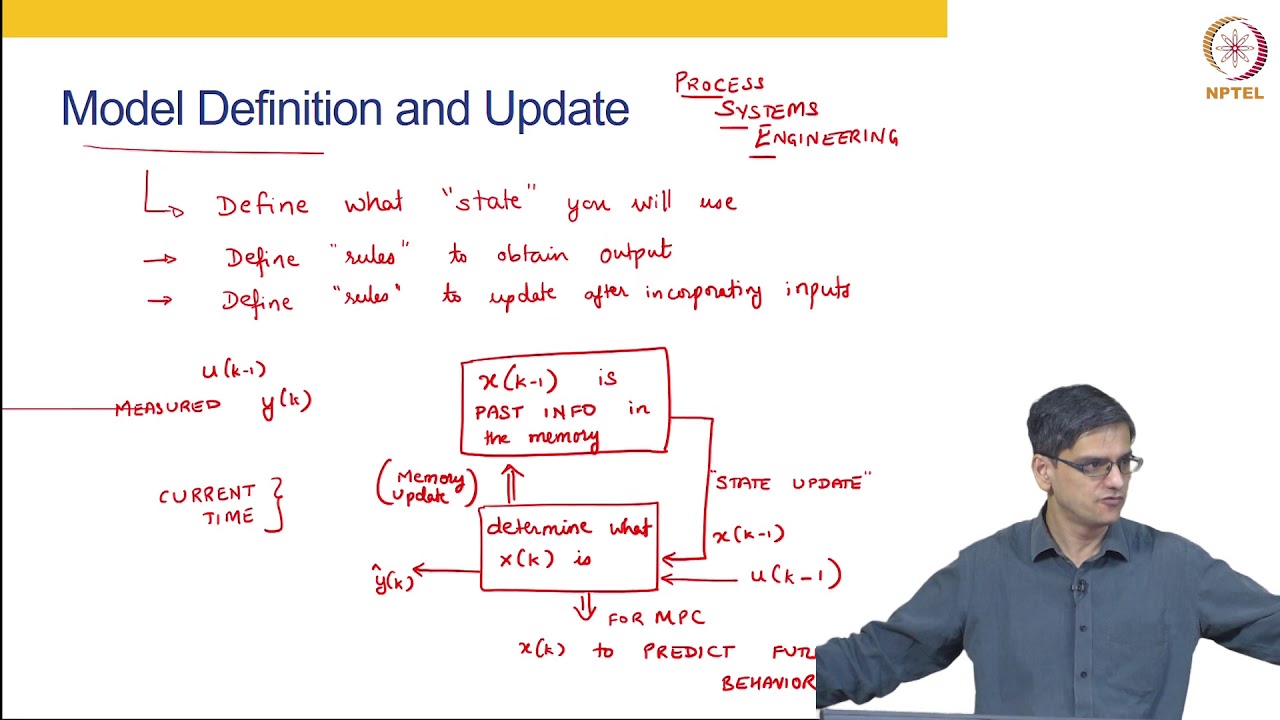 Model Definition and Update
PROCESS
SYSTEMS
ENGINEERING
NPTEL
Define what "state" you will use
Define "rules" to obtain output
Define "rules" to update after incorporating inputs
u(k-1)
MEASURED y(k)
CURRENT
TIME
x(k-1) is
PAST INFO in
the memory
(Memory
update)
"STATE UPDATE"
determine what
x(k) is
x(k-1)
u(k-1)
ŷ(k)
FOR MPC
x(k) to PREDICT
BEHAVIOR